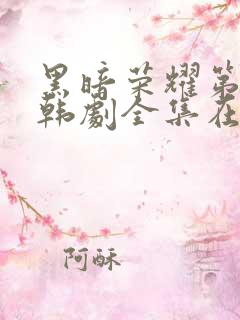 黑暗荣耀第
韩剧全集在
阿酥